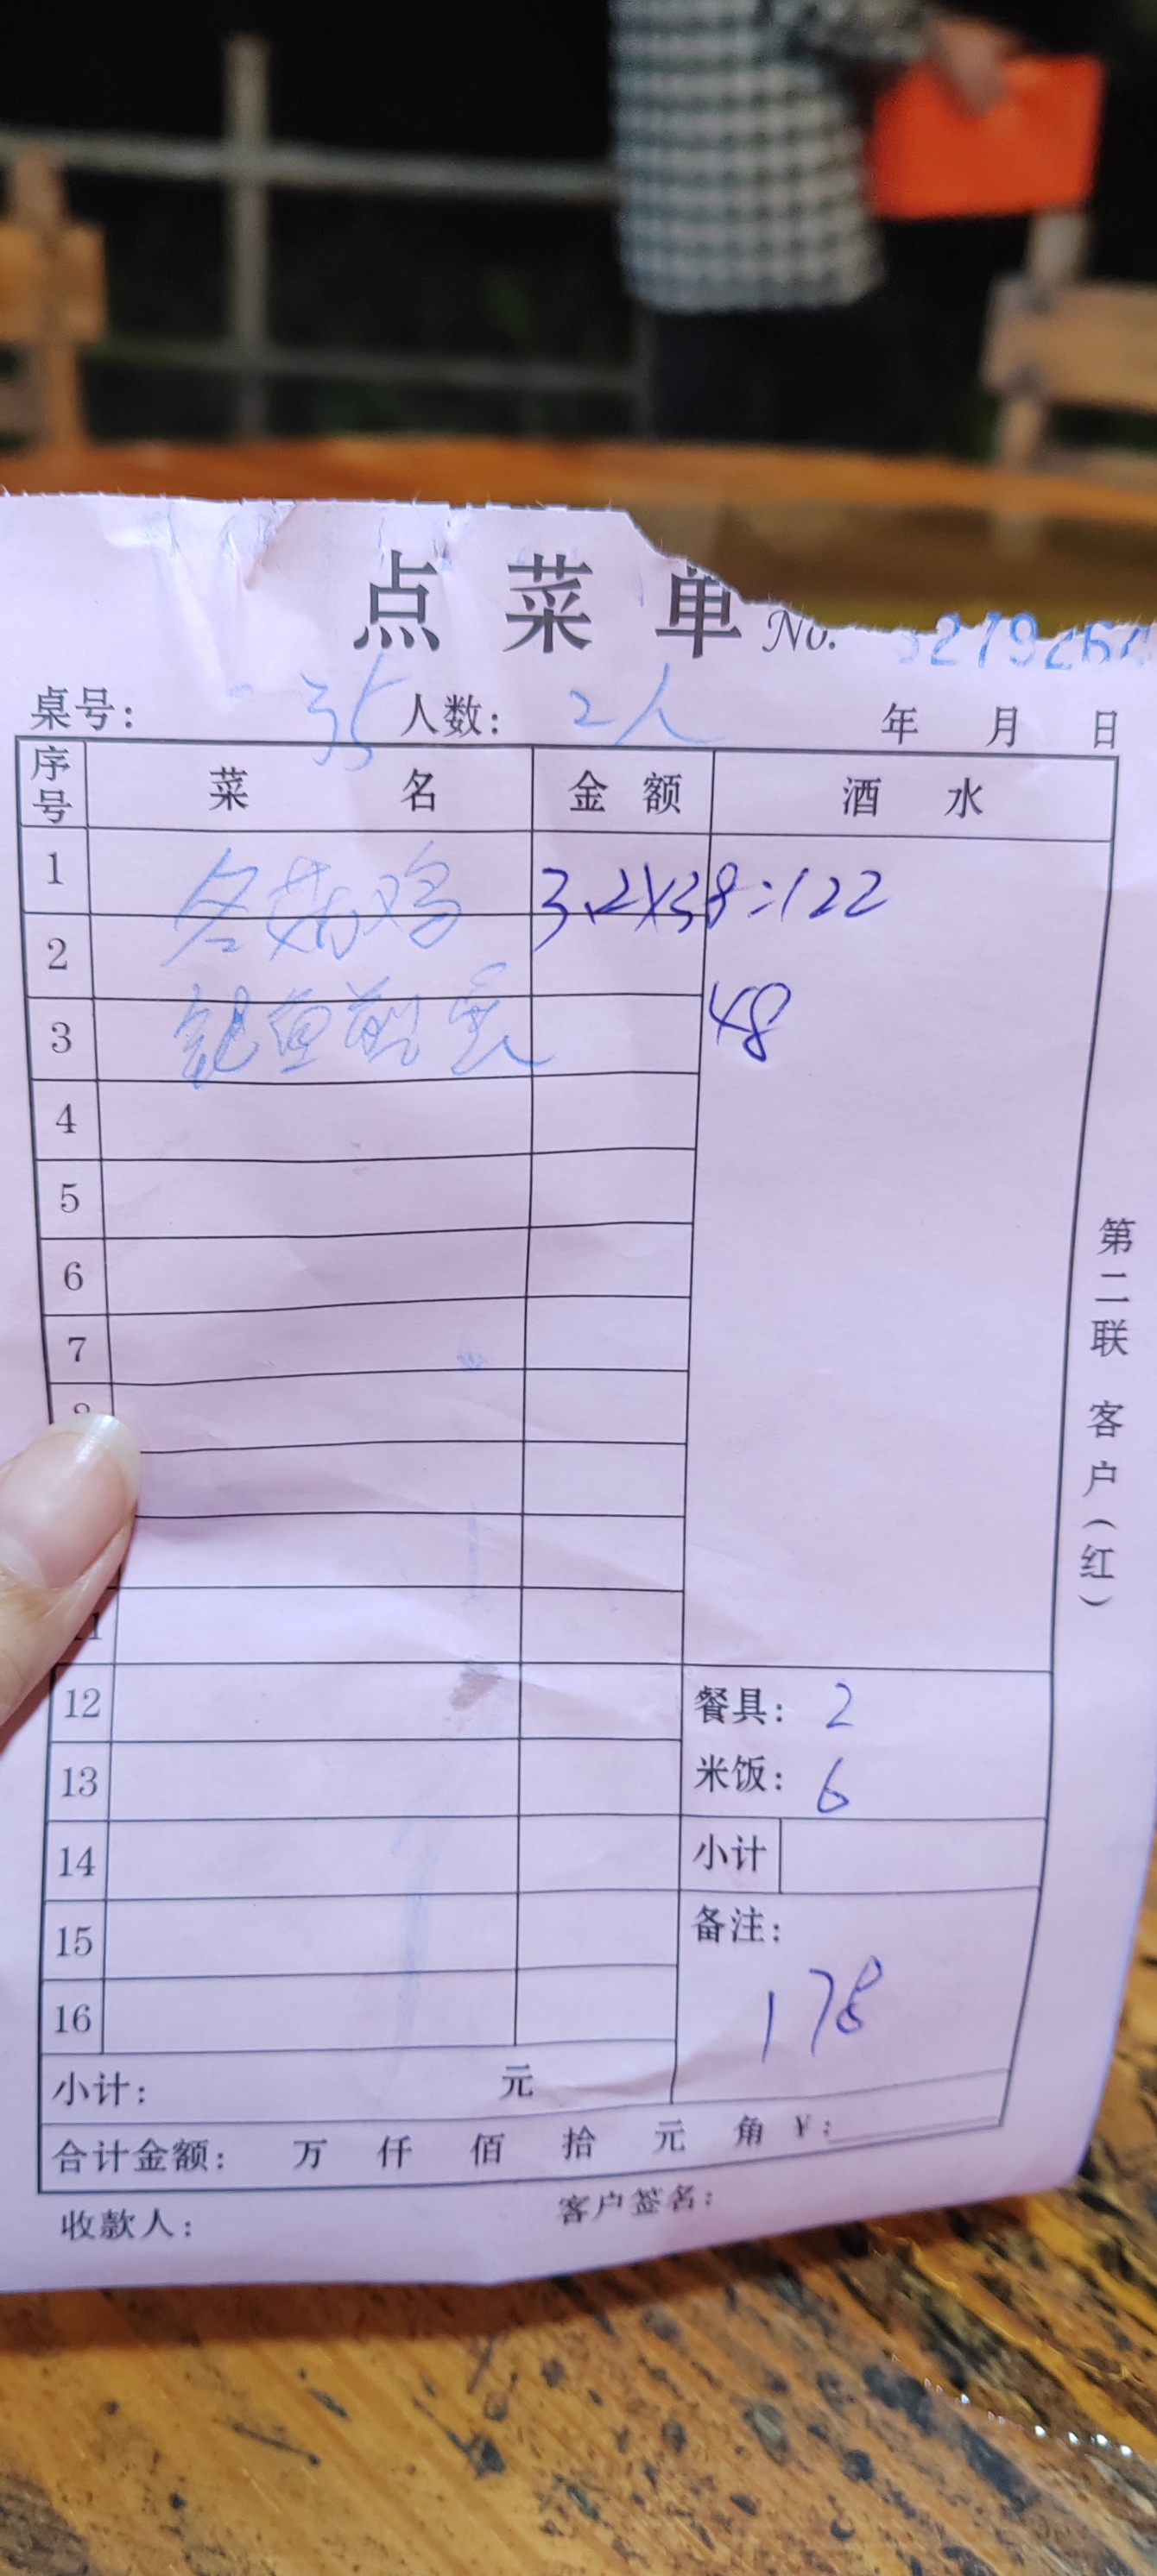 点菜单 No. 279264
桌号: 35 人数: 2人 年 月 日
序号 菜名 金额 酒水
1 冬菇鸡 3.2X38=122
2
3 鱼煎蛋 48
4
5
6
7
8
11
12
13
14
15
16
餐具: 2
米饭: 6
小计
备注:
178
小计: 元
合计金额: 万 仟 佰 拾 元 角 ¥:
收款人: 客户签名:
第二联 客户(红)